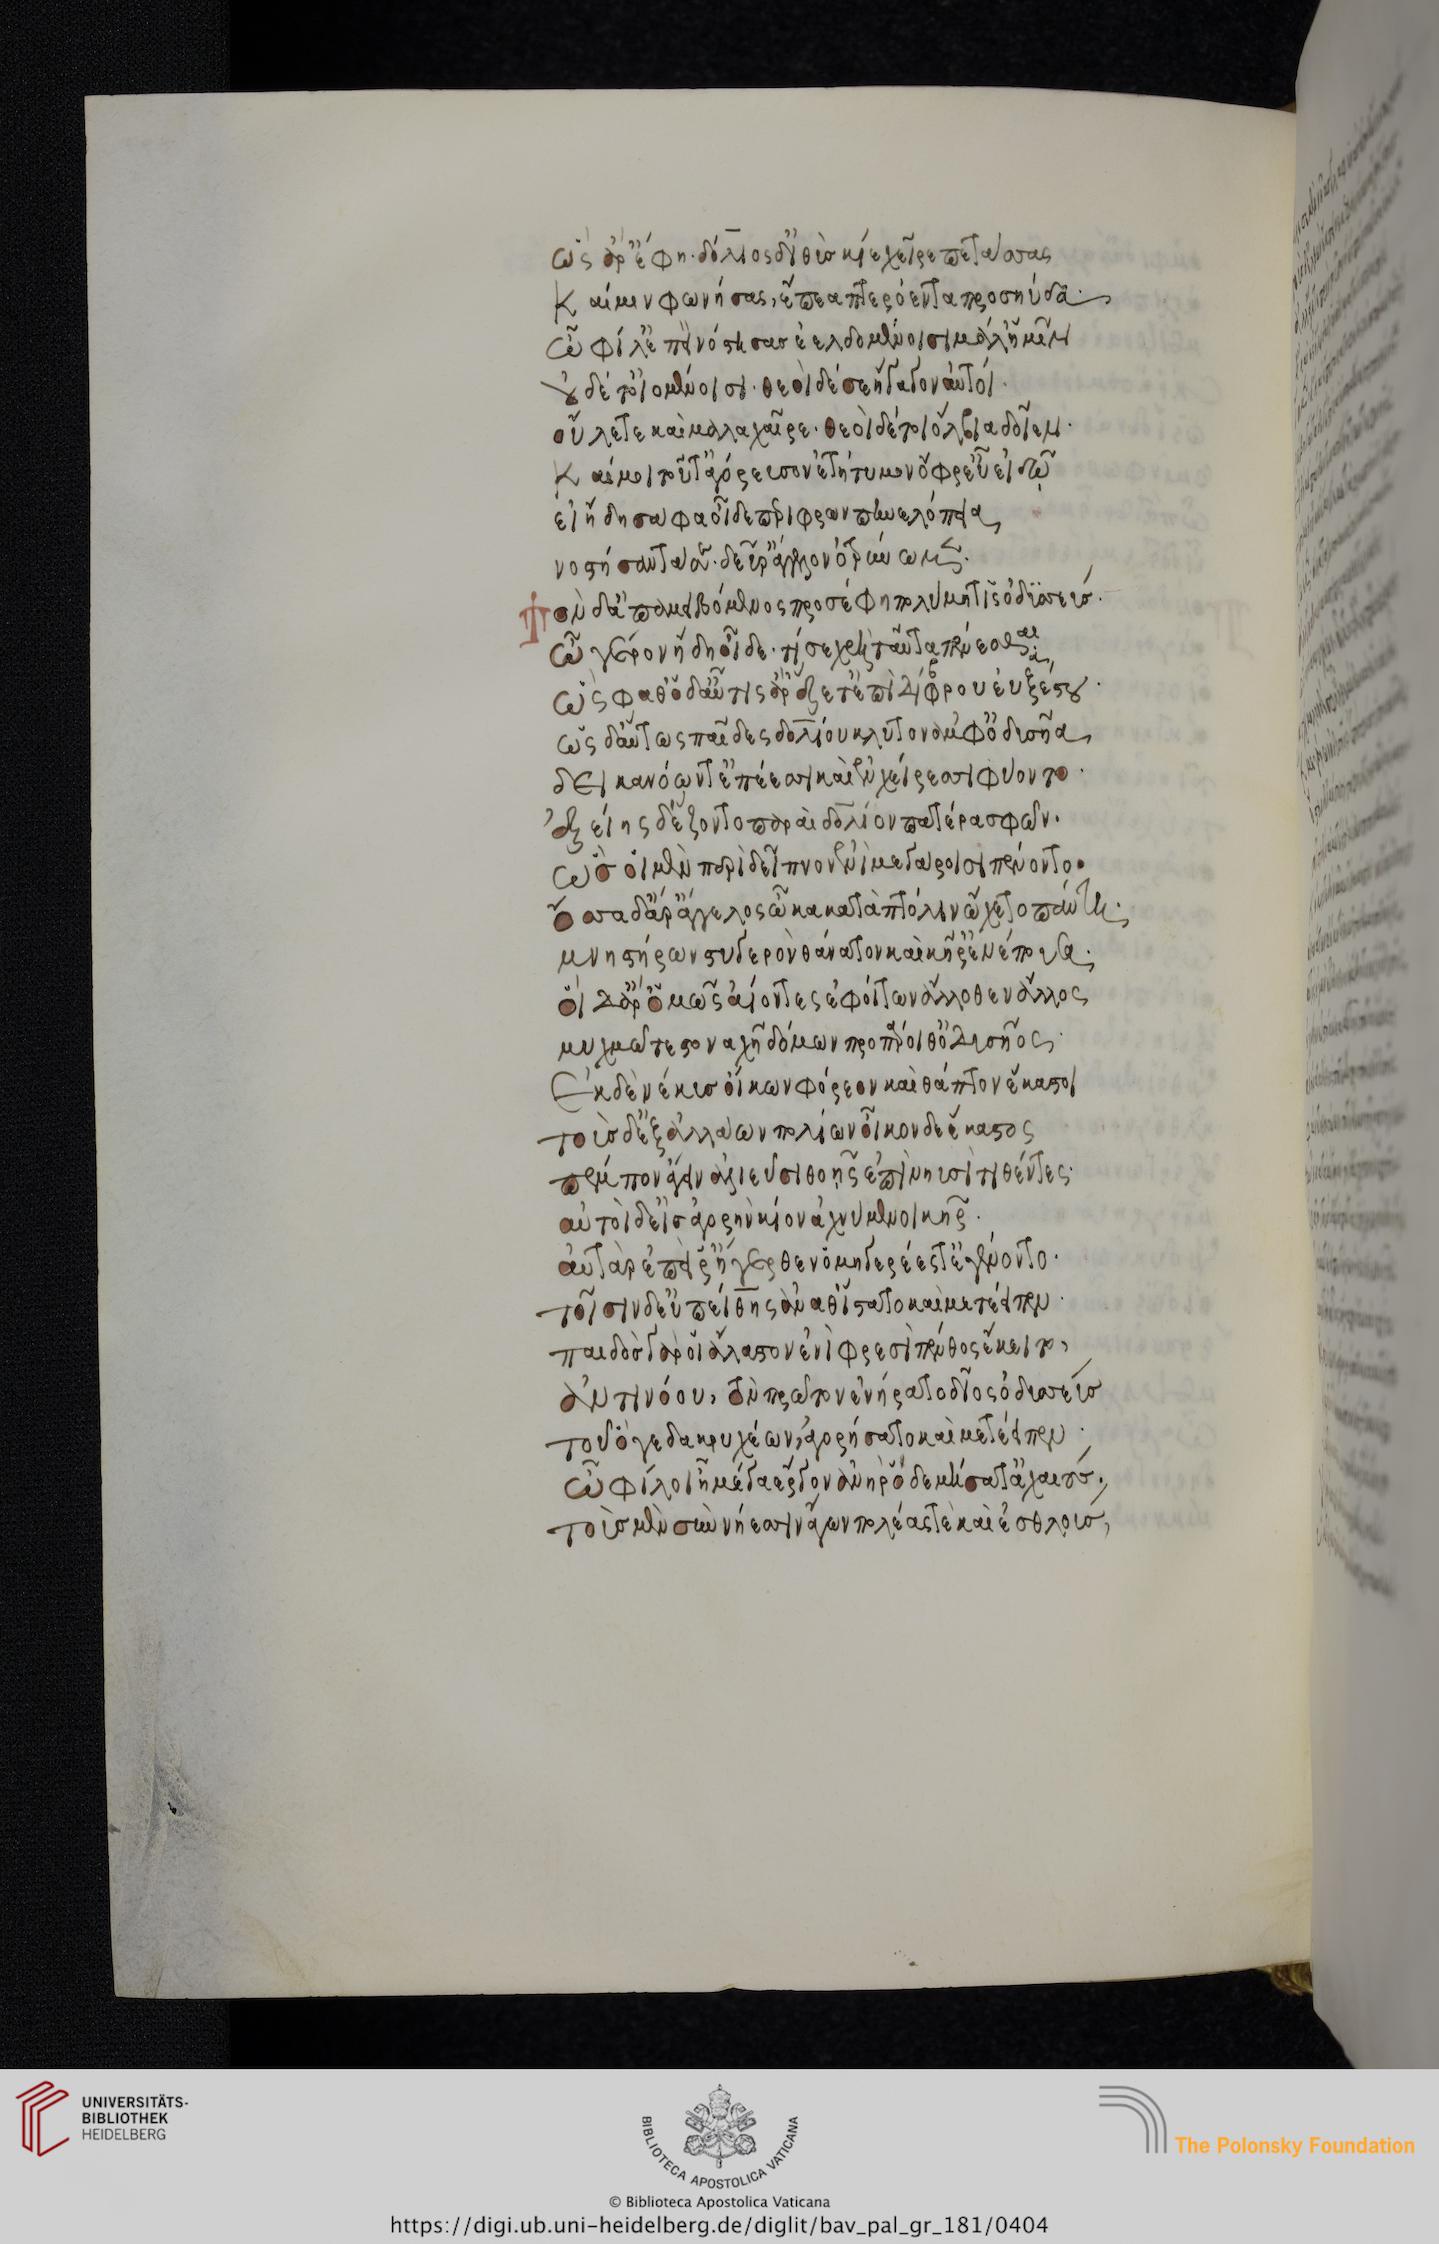 ὣς ἄρ ἔφη· δολίος δ' ἰθὺς κίε χεῖρε πετάσσας
Καί μιν φωνήσας, ἔπεα πτερόεντα προσηύδα·
Ὦ φίλ' ἐπεὶ νόστησας ἐελδομένοισι μάλ' ἡμῖν
οὐδέ τ' ὀιομένοισι· θεοὶ δέ σε ἤγαγον αὐτοί·
οὖλέ τε καὶ μάλα χαῖρε· θεοὶ δέ τοι ὄλβια δοῖεν·
Καί μοι τοῦτ' ἀγόρευσον ἐτήτυμον ὄφρ' εὖ εἰδῶ
εἰ ἤδη σάφα οἶδε περίφρων πηνελόπεια,
νοστήσαντά σε δεῦρ' ἢ ἄγγελον ὀτρύνωμεν·
Τὸν δ' ἀπαμειβόμενος προσέφη πολύμητις ὀδυσσεύς·
Ὦ γέρον ἤδη οἶδε· τί σε χρὴ ταῦτα πένεσθαι
ὣς φάθ' ὁ δ' αὖτις ἄρ' ἕζετ' ἐπὶ δίφρου ἐυξέστου·
ὣς δ' αὔτως παῖδες δολίου κλυτὸν ἀμφ' ὀδυσῆα,
δεικανόωντ' ἐπέεσσι καὶ ἐν χείρεσσι φύοντο·
ἑξείης δ' ἕζοντο παραὶ δολίον πατέρα σφῶν·
ὣς οἱ μὲν περὶ δεῖπνον ἐνὶ μεγάροισι πένοντο·
ὄσσα δ' ἄρ' ἄγγελος ὦκα κατὰ πτόλιν ᾤχετο πάντη·
μνηστήρων στυγερὸν θάνατον καὶ κῆρ' ἐνέπουσα·
οἱ δ' ἄρ' ὁμῶς ἀίοντες ἐφοίτων ἄλλοθεν ἄλλος
μυχμῷ τε στοναχῇ δόμων προπάροιθ' ὀδυσῆος·
Ἐκ δὲ νέκυς οἴκων φόρεον καὶ θάπτον ἕκαστοι
τοὺς δ' ἐξ ἀλλάων πολίων οἶκονδε ἕκαστος
πέμπον ἄγειν ἁλιεῦσι θοῇς ἐπὶ νηυσὶ τιθέντες·
αὐτοὶ δ' εἰς ἀγορὴν κίον ἀχνύμενοι κῆρ·
αὐτὰρ ἐπεί ῥ' ἤγερθεν ὁμηγερέες τ' ἐγένοντο·
τοῖσιν δ' εὐπείθης ἀνά θ' ἵστατο καὶ μετέειπεν·
παιδὸς γάρ οἱ ἄλαστον ἐνὶ φρεσὶ πένθος ἔκειτο,
ἀντινόου, τὸν πρῶτον ἐνήρατο δῖος ὀδυσσεύς
τοῦ ὅ γε δακρυχέων, ἀγορήσατο καὶ μετέειπεν·
Ὦ φίλοι ἦ μέγα ἔργον ἀνὴρ ὅδε μήσατ' ἀχαιούς·
τοὺς μὲν σὺν νήεσσιν ἄγων πολέας τε καὶ ἐσθλούς,
UNIVERSITÄTS-
BIBLIOTHEK
HEIDELBERG
BIBLIOTECA APOSTOLICA VATICANA
The Polonsky Foundation
© Biblioteca Apostolica Vaticana
https://digi.ub.uni-heidelberg.de/diglit/bav_pal_gr_181/0404